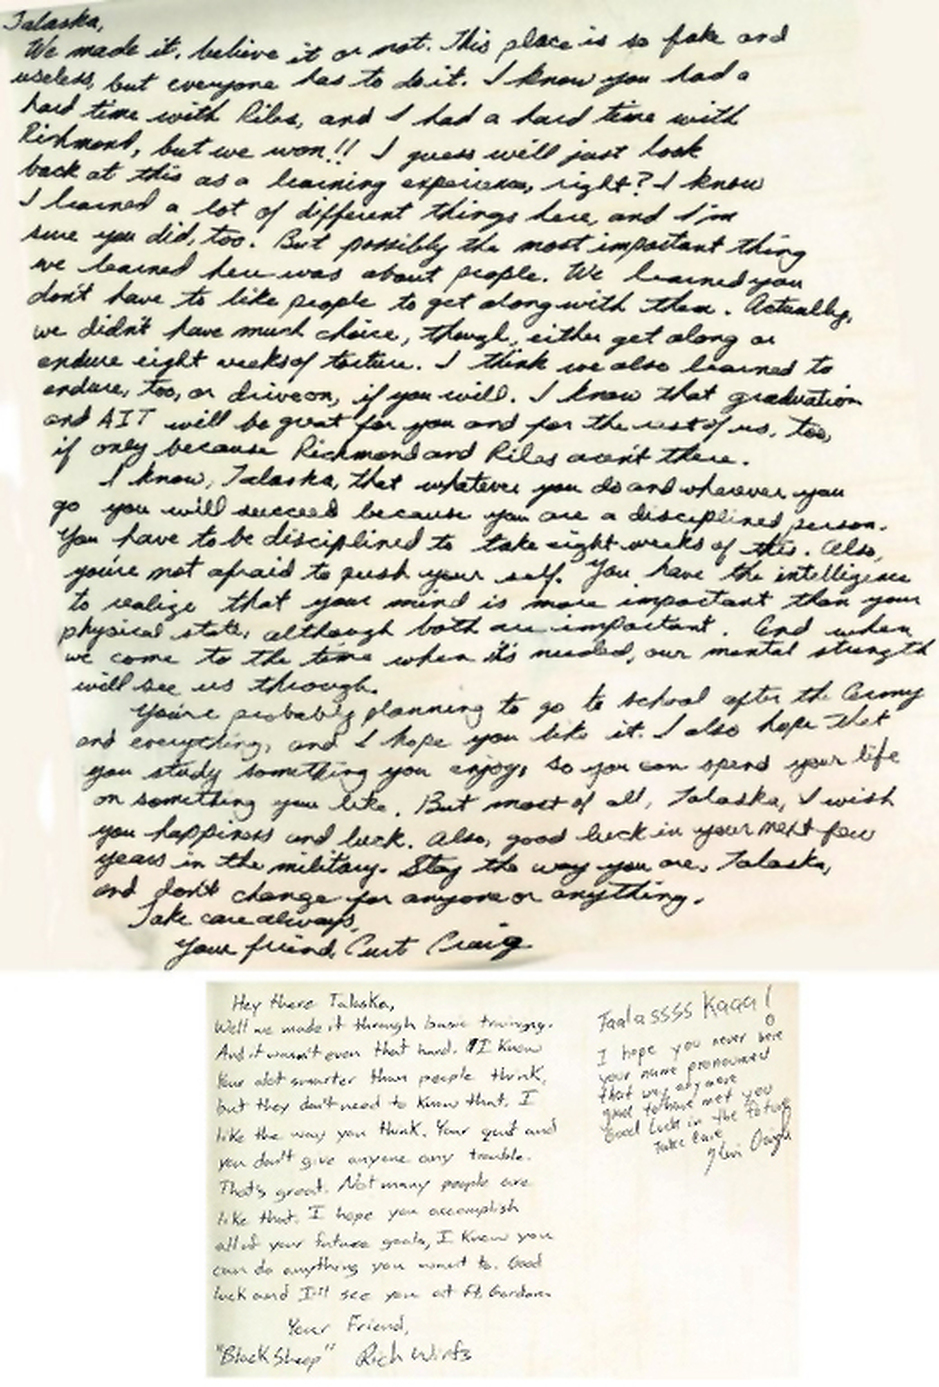 Talaska,
We made it, believe it or not. This place is so fake and
useless, but everyone has to do it. I know you had a
hard time with Riles, and I had a hard time with
Richmond, but we won!! I guess we'll just look
back at this as a learning experience, right? I know
I learned a lot of different things here, and I'm
sure you did, too. But possibly the most important thing
we learned here was about people. We learned you
don't have to like people to get along with them. Actually,
we didn't have much choice, though, either get along or
endure eight weeks of torture. I think we also learned to
endure, too, or drive on, if you will. I know that graduation
and AIT will be great for you and for the rest of us, too,
if only because Richmond and Riles aren't there.
I know, Talaska, that whatever you do and wherever you
go you will succeed because you are a disciplined person.
You have to be disciplined to take eight weeks of this. Also,
you're not afraid to push your self. You have the intelligence
to realize that your mind is more important than your
physical state, although both are important. And when
we come to the time when it's needed, our mental strength
will see us through.
You're probably planning to go to school after the Army
and everything, and I hope you like it. I also hope that
you study something you enjoy, so you can spend your life
on something you like. But most of all, Talaska, I wish
you happiness and luck. Also, good luck in your next few
years in the military. Stay the way you are, Talaska,
and don't change for anyone or anything.
Take care always,
Your friend, Curt Craig
Hey there Talaska,
Well we made it through basic trainging.
And it wasn't even that hard. I Know
Your alot smarter than people think,
but they don't need to know that. I
like the way you think. Your quit and
you don't give anyone any trouble.
That's great. Not many people are
like that. I hope you accomplish
all of your future goals, I Know you
can do anything you want to. Good
luck and I'll see you at Ft. Gordon
Your Friend,
"Black Sheep" Rich
Taalassss Kaaa!
I hope you never here
your name pronounced
that way any more
good to have met you
Good Luck in the future
Take Care